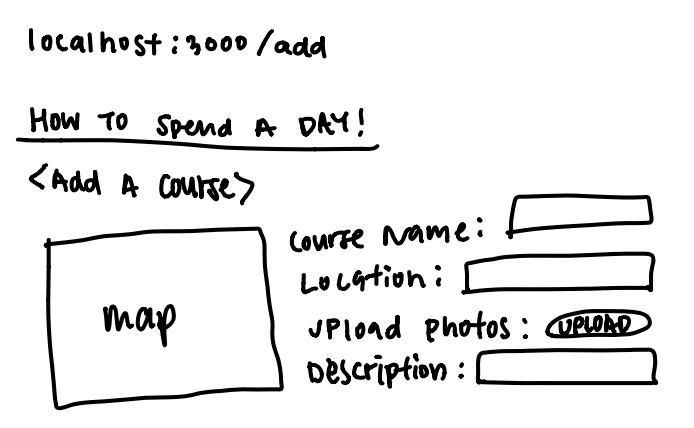 localhost:3000/add
HOW TO Spend A DAY!
<Add A Course>
map
Course Name:
Location:
Upload Photos: UPLOAD
Description: